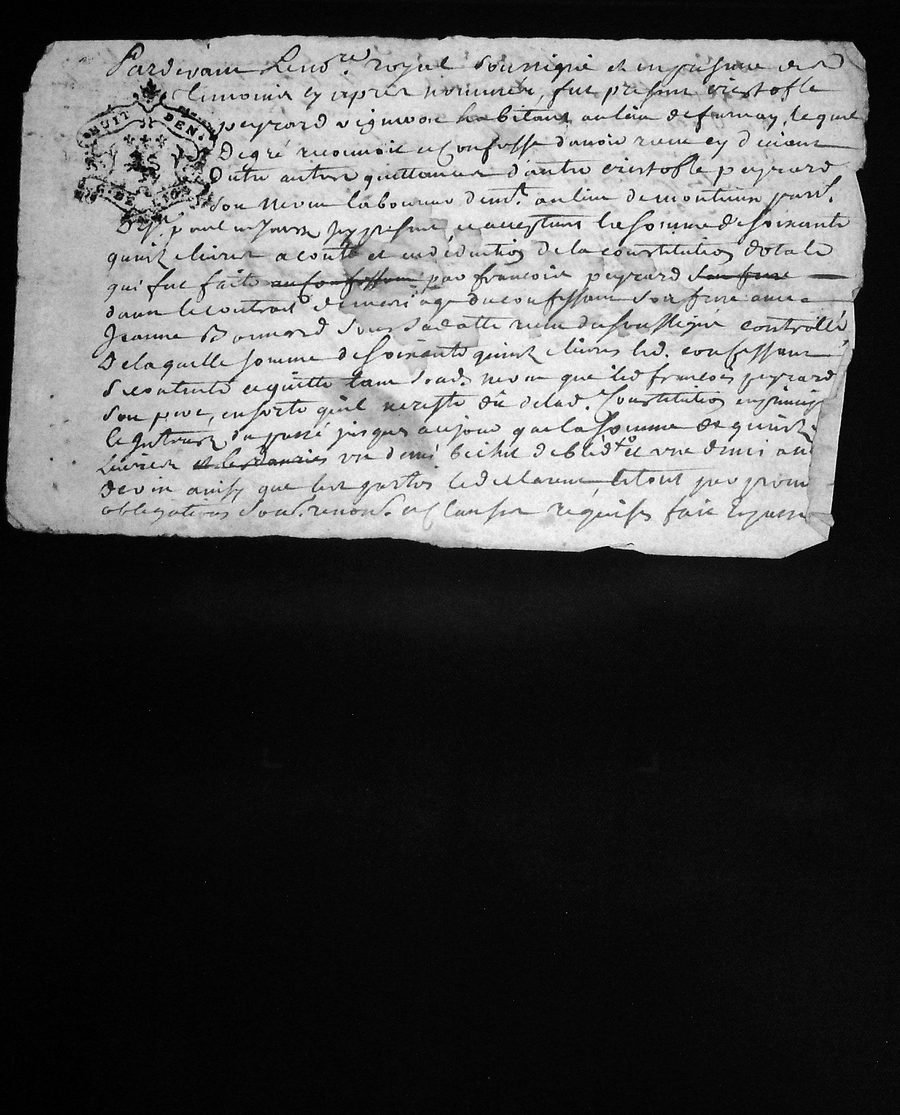 Pardevant Le no.re royal soussigné et en presence des
temoins cy apres nommés, fut present cristofle
HUIT DEN.
peyrard vigneron habitant au lieu de furnay, lequel
De gré reconnoit et Confesse d'avoir receu cy devant
Outre autres quittances d'autre cristofle peyrard
son neveu laboureur dem.t au lieu de par.sse
De S.t paul en Jarest, icy present et acceptant la somme de soixante
quinze livres a conte et en deduction de la constitution dotale
qui fut faite au confessant par francois peyrard son frere
dans le contrat de mariage du confessant son frere avec
Jeanne sous sa datte receu du soussigné controllé
De laquelle somme de soixante quinze livres led. confessant
se contente et quitte tant sond. neveu que led francois peyrard
son pere, en sorte qu'il ne reste dû de lad. Constitution en principal
et interest du passé jusques aujour que la somme de quinze
Livres un demi bichet de bled et une demi an
de vin ainsy que les parties le declarent le tout par prom
obligations soub. renon. et Clauses requises fait et passé